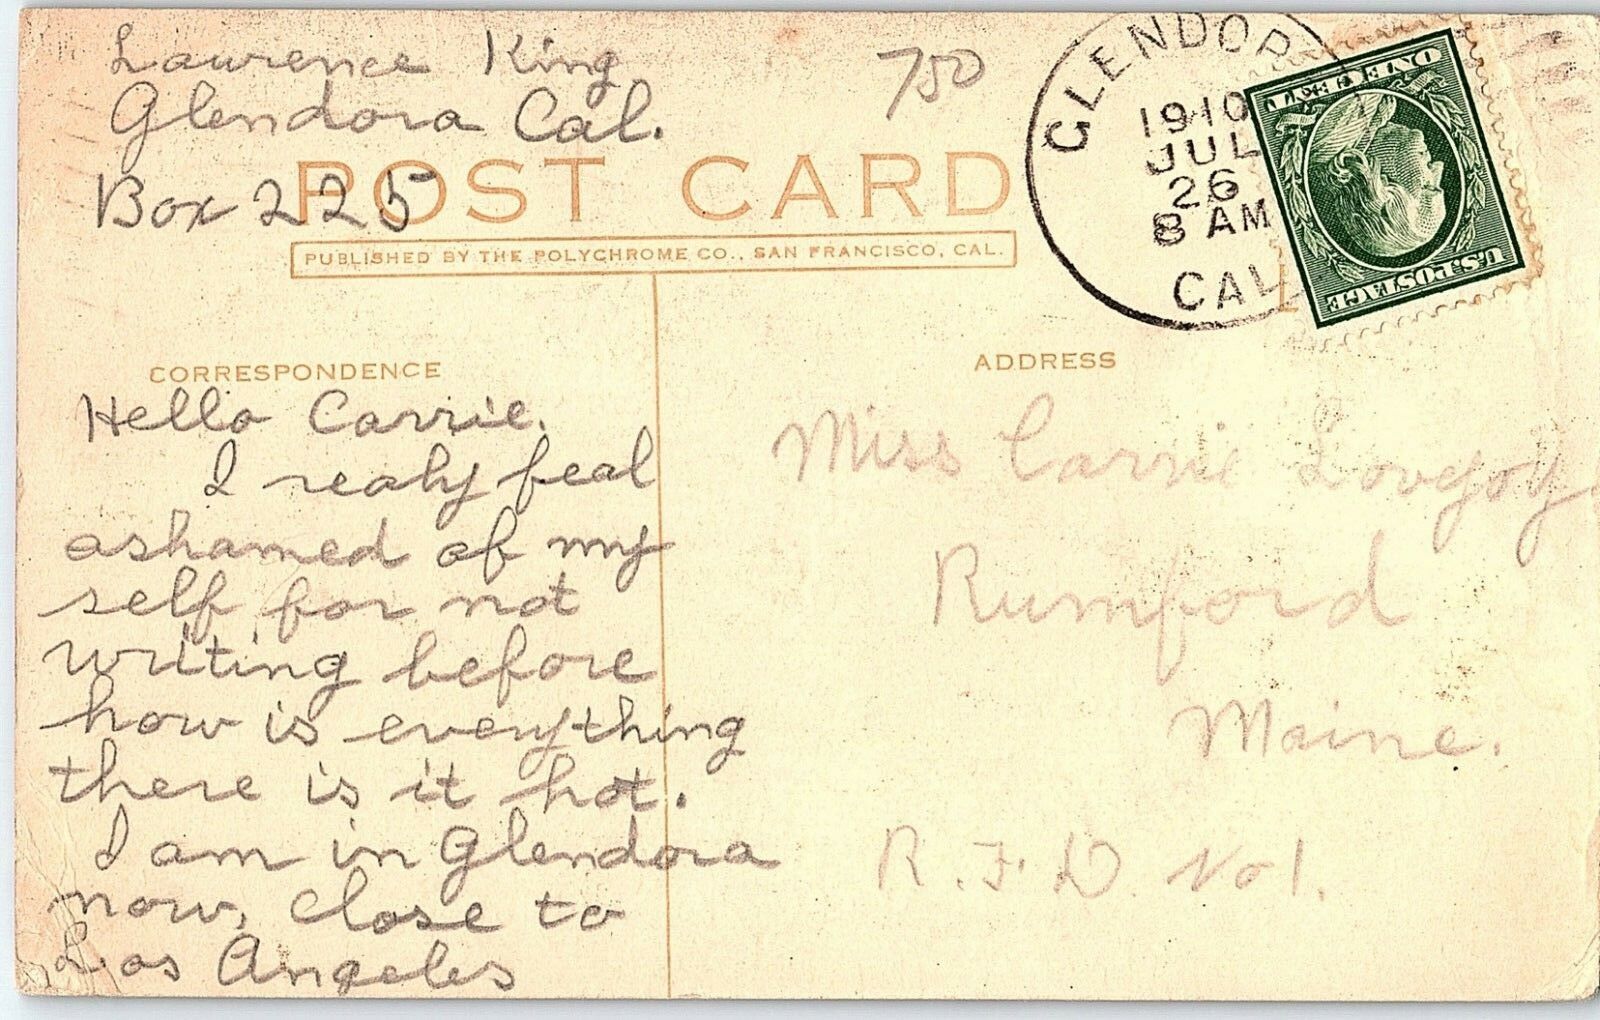 Lawrence King
Glendora Cal.
Box 225
750
POST CARD
PUBLISHED BY THE POLYCHROME CO., SAN FRANCISCO, CAL.
GLENDOR
1910
JUL
26
8 AM
CAL
ONE CENT
U.S. POSTAGE
CORRESPONDENCE
Hello Carrie.
I realy feal
ashamed of my
self for not
writing before
how is everything
there is it hot.
I am in Glendora
now, close to
Los Angeles
ADDRESS
Miss Carrie Lovejoy
Rumford
Maine.
R.F.D. No 1.